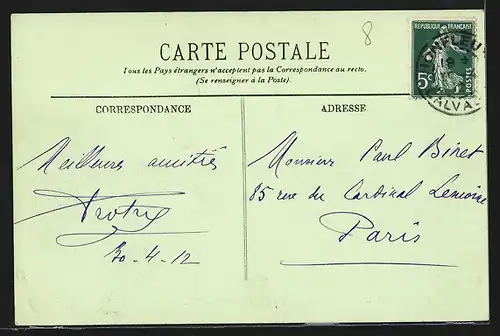 8
CARTE POSTALE
Tous les Pays étrangers n'acceptent pas la Correspondance au recto.
(Se renseigner à la Poste).
RÉPUBLIQUE FRANÇAISE
5c
POSTES
HONFLEUR
CALVA
CORRESPONDANCE
ADRESSE
Meilleures amitiés
30-4-12
Monsieur Paul Binet
85 rue du Cardinal Lemoine
Paris